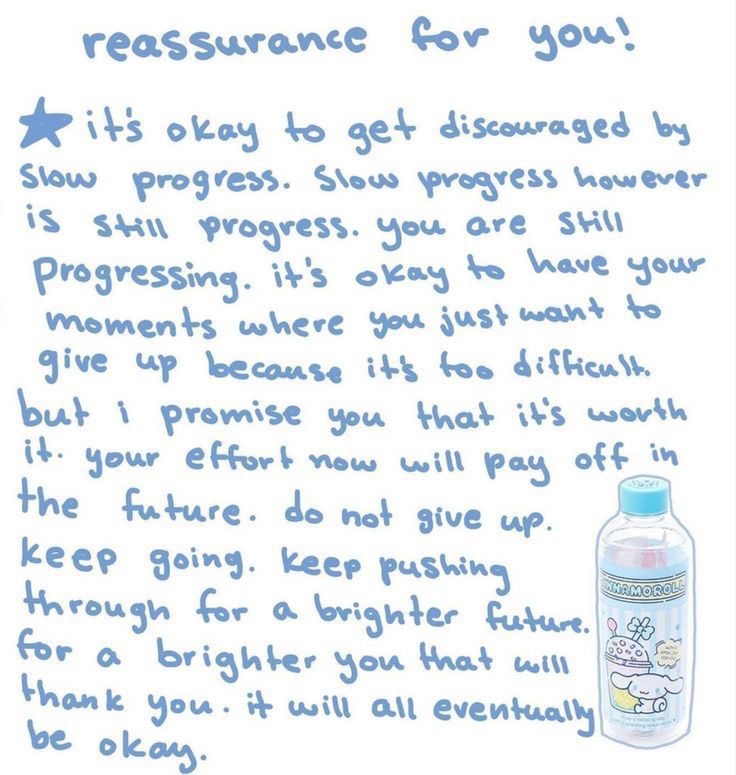 reassurance for you!
it's okay to get discouraged by
slow progress. slow progress however
is still progress. you are still
progressing. it's okay to have your
moments where you just want to
give up because it's too difficult.
but i promise you that it's worth
it. your effort now will pay off in
the future. do not give up.
keep going. keep pushing
through for a brighter future.
for a brighter you that will
thank you. it will all eventually
be okay.
CINNAMOROLL